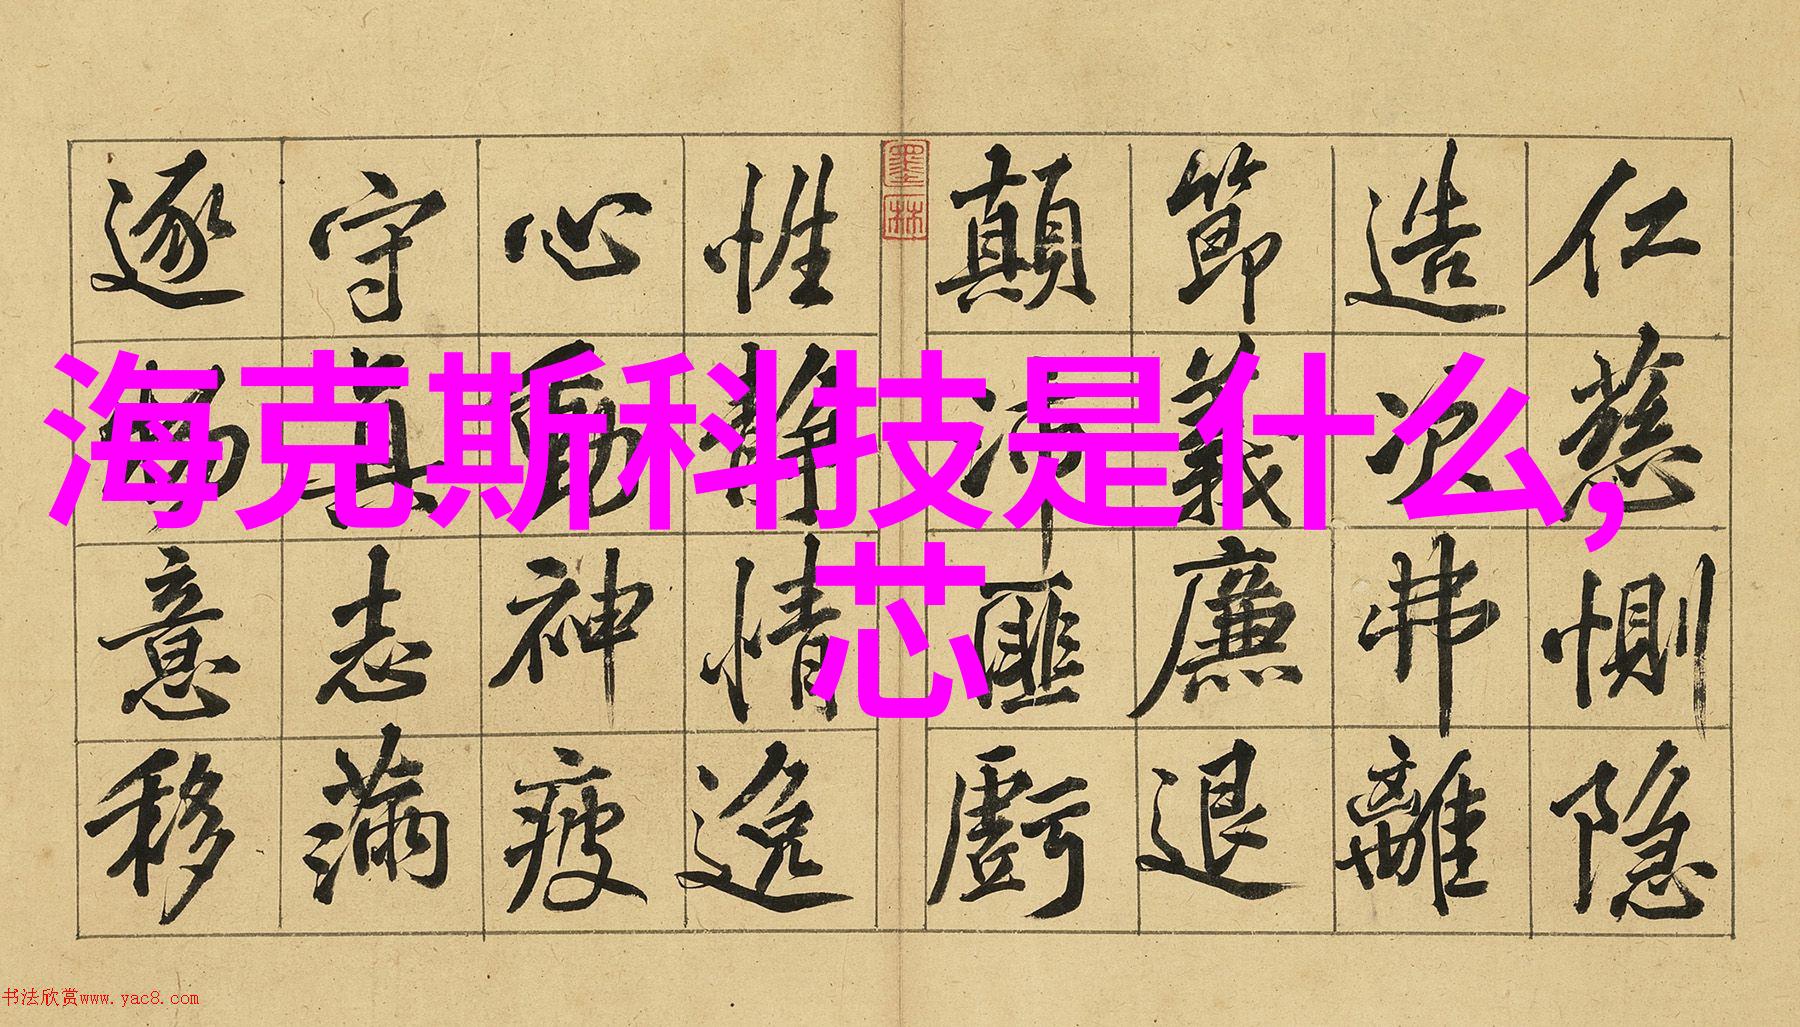 海克斯科技是什么，
芯
仁慈惻隐
造次弗離
節義廉退
顛沛匪虧
性静情逸
心動神疲
守真志满
逐物意移
墨林
书法欣赏www.yac8.com